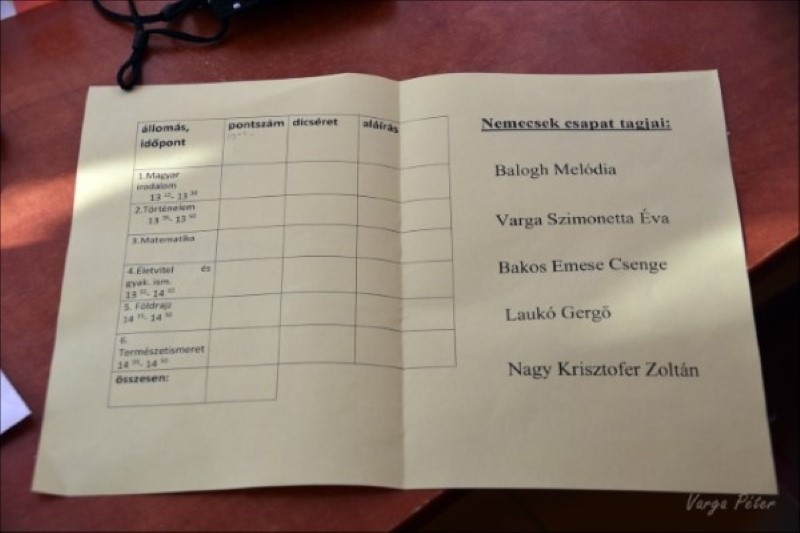 állomás, időpont pontszám dicséret aláírás
1.Magyar
irodalom
2.Történelem
3.Matematika
4.Életvitel és
gyak. ism.
5. Földrajz
6.
Természetismeret
összesen:
Nemecsek csapat tagjai:
Balogh Melódia
Varga Szimonetta Éva
Bakos Emese Csenge
Laukó Gergő
Nagy Krisztofer Zoltán
Varga Péter